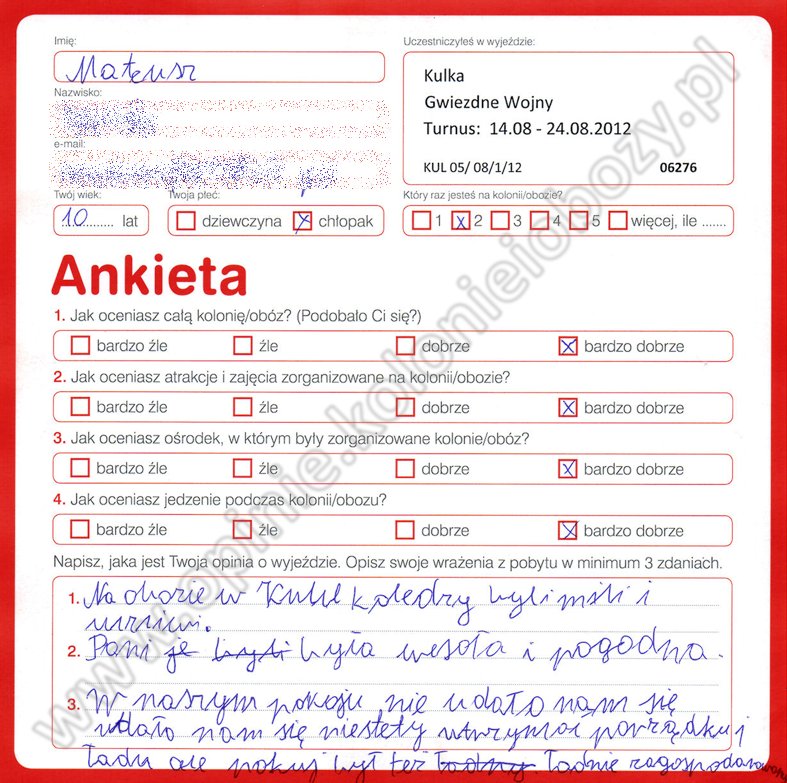 Imię:
Mateusz
Nazwisko:
e-mail:
Twój wiek:
10 lat
Twoja płeć:
dziewczyna x chłopak
Uczestniczyłeś w wyjeździe:
Kulka
Gwiezdne Wojny
Turnus: 14.08 - 24.08.2012
KUL 05/ 08/1/12 06276
Który raz jesteś na kolonii/obozie?
1 x 2 3 4 5 więcej, ile .......
Ankieta
1. Jak oceniasz całą kolonię/obóz? (Podobało Ci się?)
bardzo źle źle dobrze x bardzo dobrze
2. Jak oceniasz atrakcje i zajęcia zorganizowane na kolonii/obozie?
bardzo źle źle dobrze x bardzo dobrze
3. Jak oceniasz ośrodek, w którym były zorganizowane kolonie/obóz?
bardzo źle źle dobrze x bardzo dobrze
4. Jak oceniasz jedzenie podczas kolonii/obozu?
bardzo źle źle dobrze x bardzo dobrze
Napisz, jaka jest Twoja opinia o wyjeździe. Opisz swoje wrażenia z pobytu w minimum 3 zdaniach.
1. Na obozie w koledzy byli mili i
2. Pani była wesoła i pogodna.
3. W naszym pokoju nie udało nam się
udało nam się niestety utrzymać porządku i
ładu ale pokój był też ładnie zagospodarowany
www.opinie.kolonieiobozy.pl